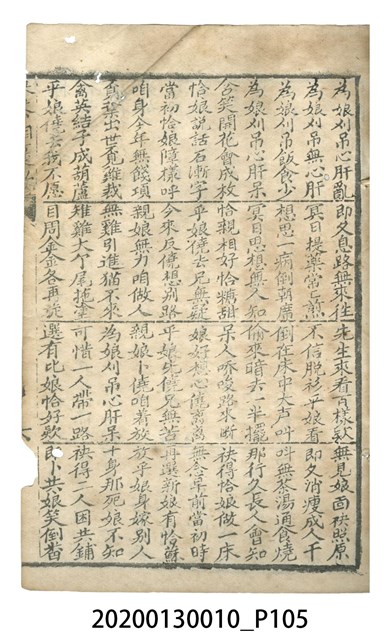 為娘刈吊心肝亂 即久息路無來往 先生來看百樣款 無見娘面袂照原
為娘刈吊無心肝 冥日提藥當七煎 不信脫衫乎娘看 即久消瘦成人干
為娘刈吊飯食少 想思一病倒朝廣 倒在床中大声叫 叫無茶湯通食燒
為娘刈吊心肝呆 冥日思想無人知 偷來暗去一半擺 那行久長人會知
含笑開花會成枚 恰親相好恰糖甜 呆人唆路來断 袂得恰娘做一床
恰娘說話石漸字 乎娘僥去兄無疑 娘好心僥 無念年前當初時
當初恰娘障樣呼 分來反僥想別路 乎娘此僥兄無舌 再選新娘有恰穌
咱身今年無餒項 親娘無力咱做人 親娘卜僥咱着放 放乎娘身嫁別人
出世難裁 無雞引進猶不來 為娘刈吊心肝呆 十身那死娘不知
禽英結子成葫蘆 雉雞大个尾拖塗 可惜一人帶一路 袂得一人因共鋪
乎娘僥去我不愿 目周金金各再 選有比娘恰好款 即卜共娘笑倒昔
20200130010_P105